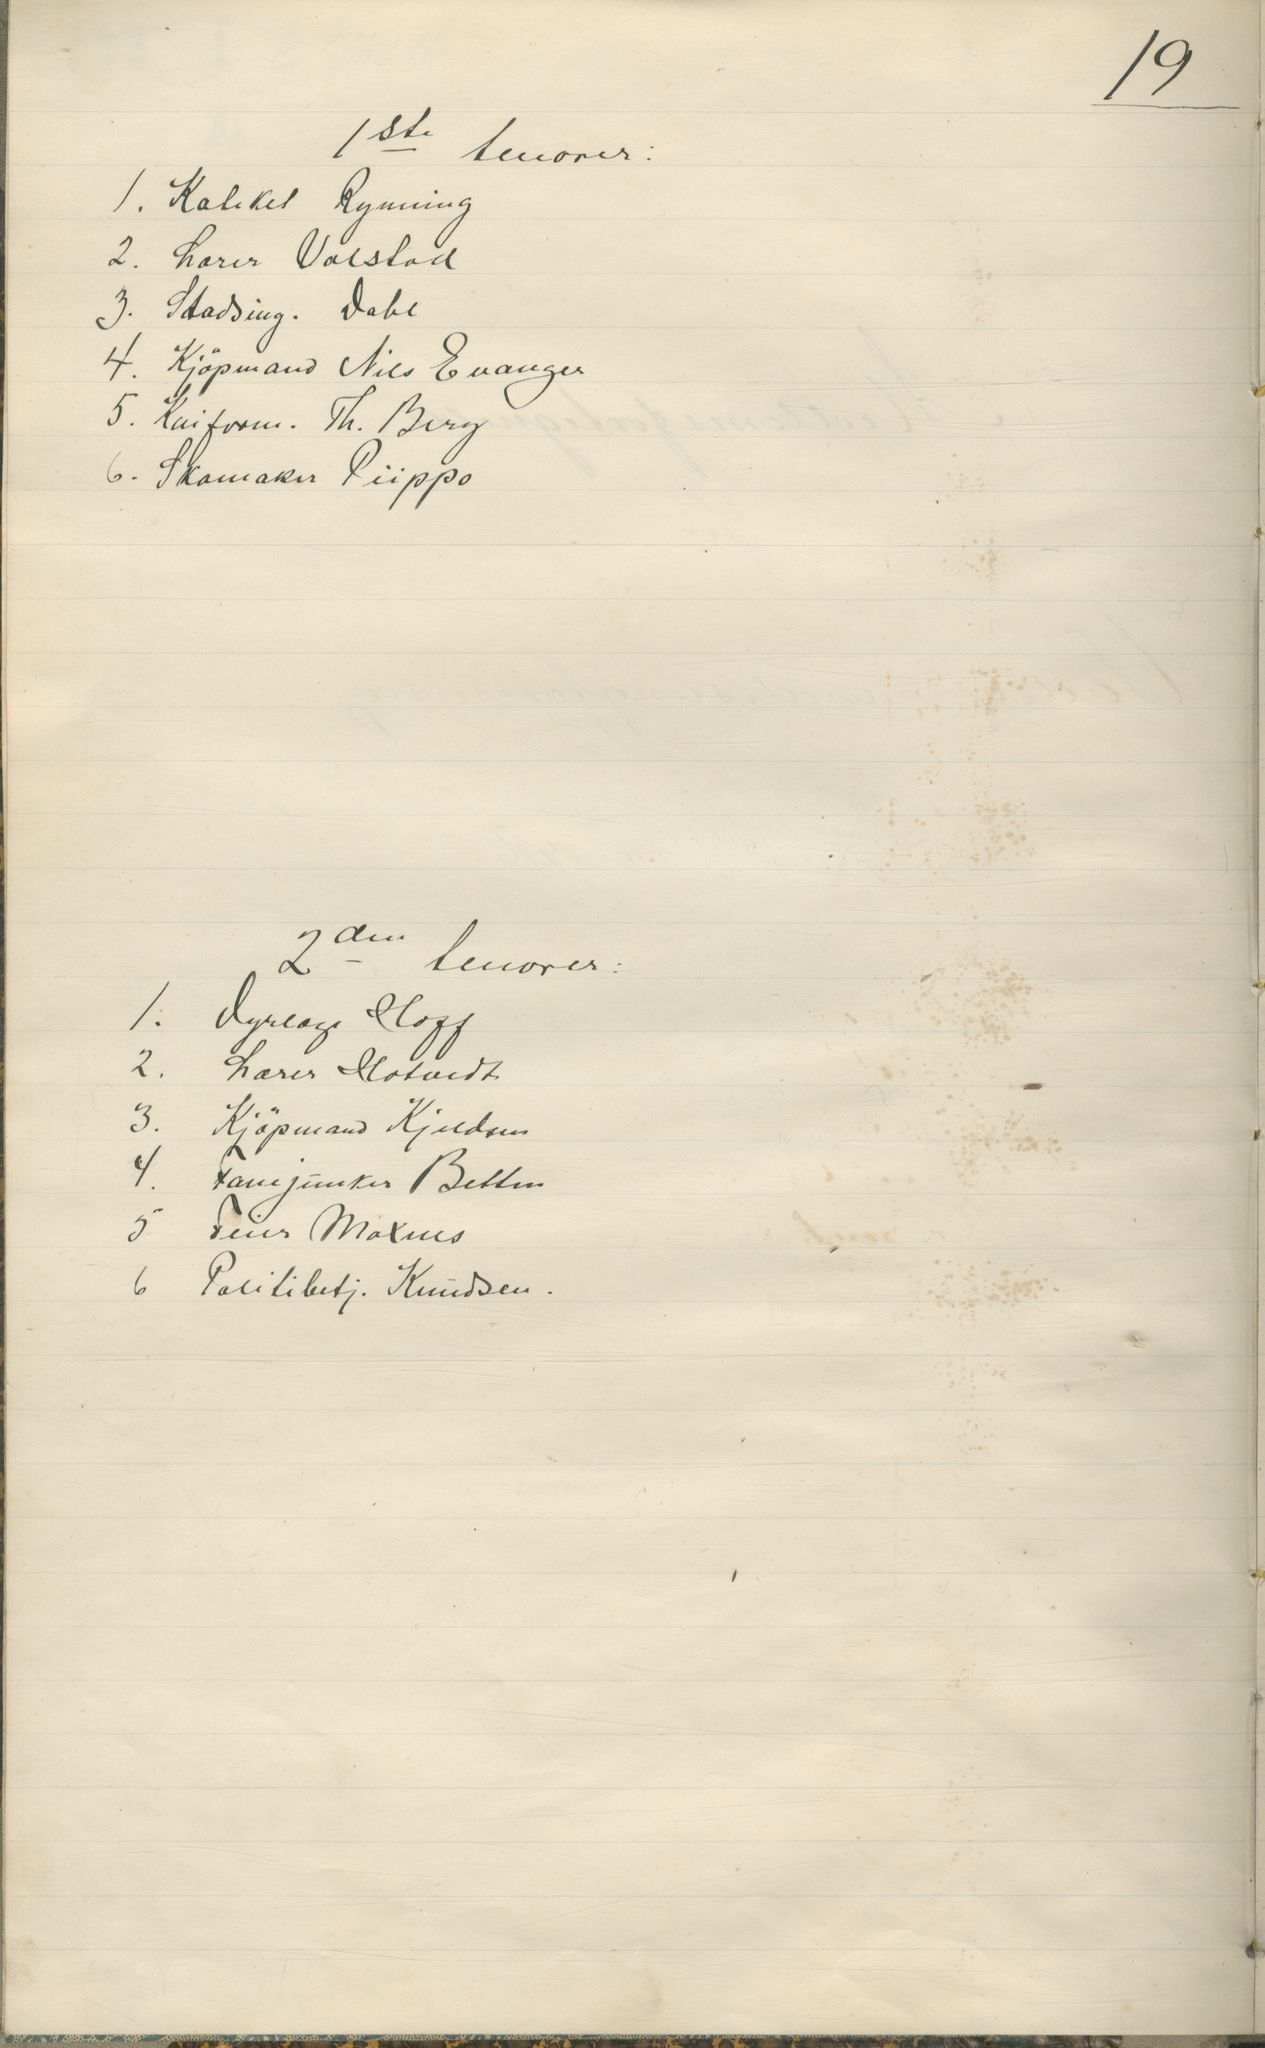 19
1ste tenorer:
1. Kateket Rynning
2. Lærer Volstad
3. Stadsing. Dahl
4. Kjöpmand Nils Evanger
5. Kaiform. Th. Berg
6. Skomaker Piippo
2den tenorer:
1. Dyrlæge Hoff
2. Lærer Hotvedt
3. Kjöpmand Kjeldsen
4. Fanejunker Betten
5 Feier Moxnes
6 Politibetj. Knudsen.